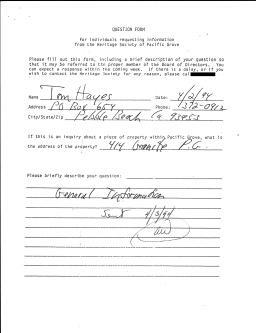 QUESTION FORM
For individuals requesting information
from the Heritage Society of Pacific Grove
Please fill out this form, including a brief description of your question so
that it may be referred to the proper member of the Board of Directors. You
can expect a response within the coming week. If there is a delay, or if you
wish to contact the Heritage Society for any reason, please call
Name Tom Hayes Date: 4/2/94
Address PO Box 654 Phone: 1372-0913
City/State/Zip Pebble Beach Ca 93953
If this is an inquiry about a piece of property within Pacific Grove, what is
the address of the property? 414 Granite P.G.
Please briefly describe your question:
General Information
Sent 4/3/94